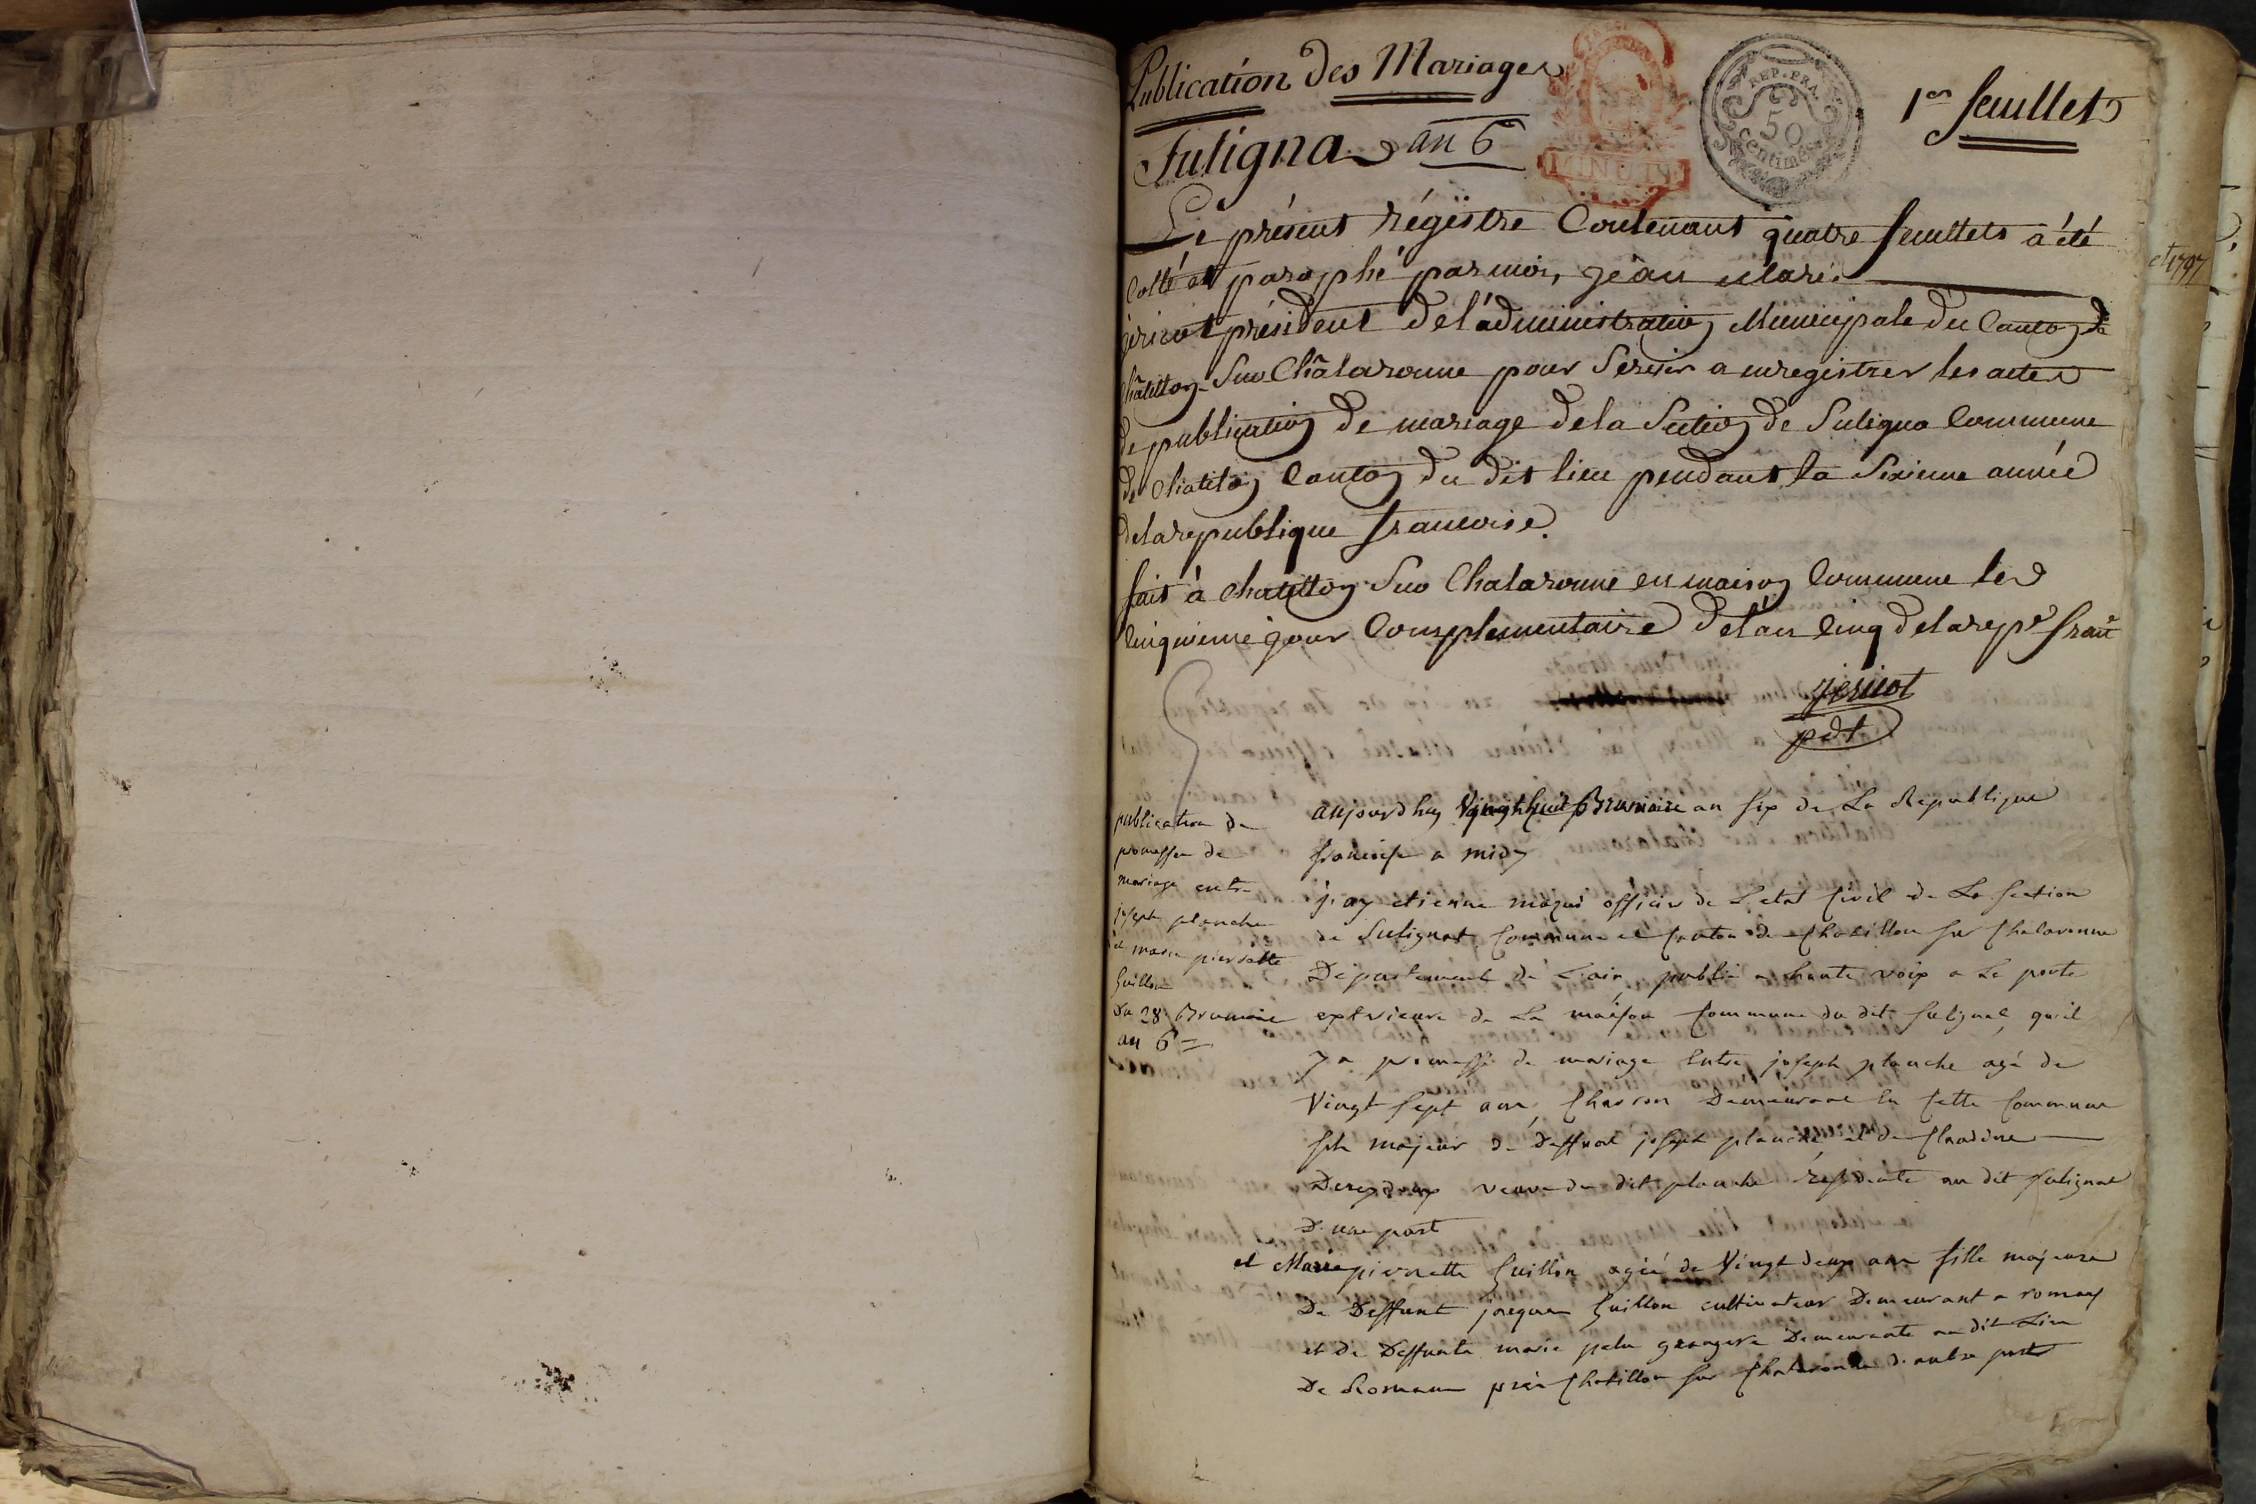 Publication des Mariages
Suligna an 6
MINUTE
REP. FRA.
50
centimes
1er feuillet
et 1797
Le présent régistre Contenant quatre feuillets a été
Cotté et paraphé par moi, jean Marie
jericot président de l'administration Municipale du Canton de
Châtillon Sur Châlaronne pour Servir a enregistrer les actes
de publication de mariage de la Section de Suligna Commune
de Chatillon Canton du dit lieu pendant la Sixieme année
de la republique francoise.
fait à Chatillon Sur Chalaronne en maison Commune le
Cinquieme jour Complementaire de l'an Cinq de la repe franc
jericot
pdt
publication de
promesse de
mariage entre
joseph planche
et marie pierrette
Guillon
Du 28 Brumaire
an 6
aujourdhuy Vingthuit Brumaire an six de La Republique
francoise a midy
j'ay etienne officier de L'etat Civil de La section
de Sulignat, Commune et Canton de Chatillon sur Chalaronne
Département de L'ain, publié a haute voix a La porte
exterieure de La maison Commune du dit Sulignat, qu'il
y a promesse de mariage Entre joseph planche agé de
Vingt sept ans, Charron Demeurant En Cette Commune
fils majeur de Deffunt joseph planche et de Claudine
veuve du dit planche résidente au dit Sulignat
D'une part
et Marie pierrette Guillon agée de Vingt deux ans fille majeure
De Deffunt jacques Guillon cultivateur Demeurant a romans
et De Deffunte marie grangere Demeurante au dit Lieu
De Romans près Chatillon sur Chalaronne D'autre part